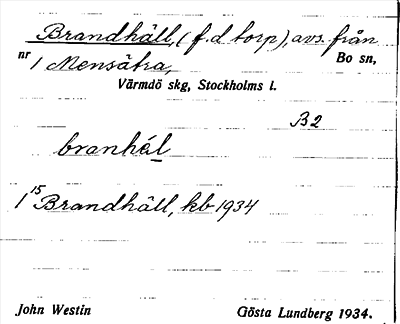 Brandhäll, (f.d torp), avs. från
nr 1 Mensätra, Bo sn,
Värmdö skg, Stockholms l.
B2
branhál
1 15 Brandhäll, kb 1934
John Westin Gösta Lundberg 1934.